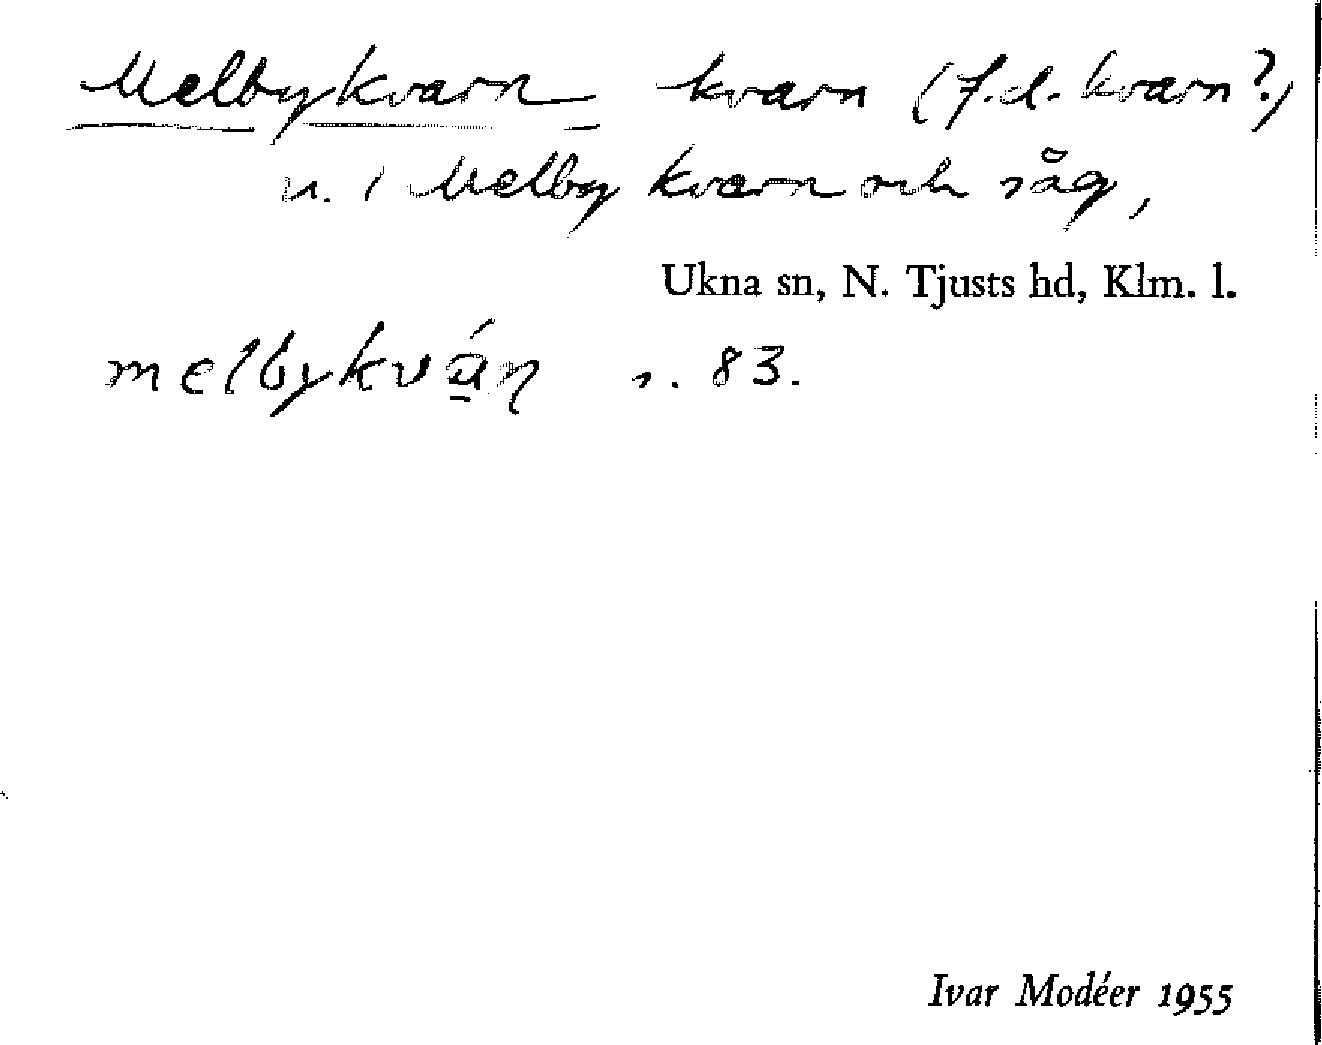 Melbykvarn kvarn (f.d. kvarn?)
u. 1 Melby kvarn och såg,
Ukna sn, N. Tjusts hd, Klm. l.
melbykván s. 83.
Ivar Modéer 1955